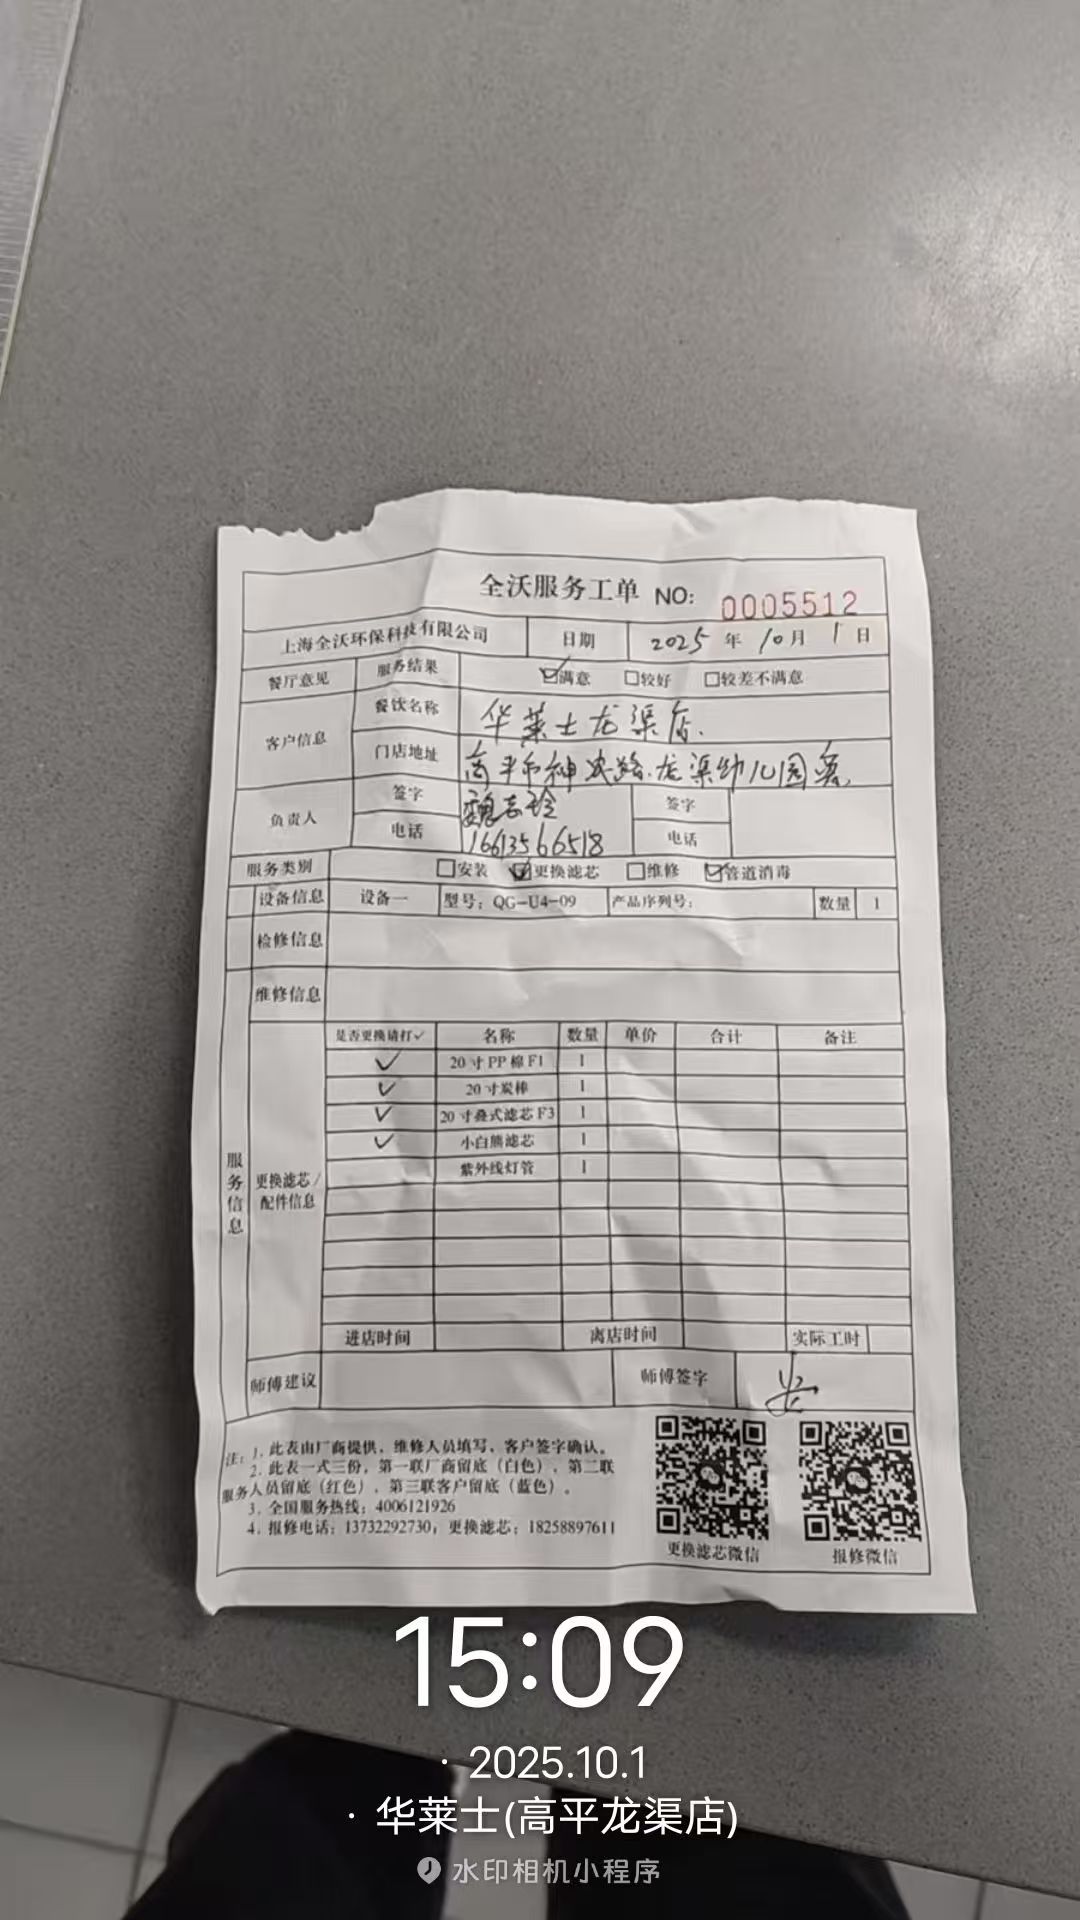 全沃服务工单 NO: 0005512
上海全沃环保科技有限公司 日期 2025 年 10 月 1 日
餐厅意见 服务结果 ☑满意 □较好 □较差不满意
客户信息 餐饮名称 华莱士龙渠店.
门店地址 高平市神农路.龙渠幼儿园旁
负责人 签字 魏志玲 签字
电话 16613566518 电话
服务类别 □安装 ☑更换滤芯 □维修 ☑管道消毒
设备信息 设备一 型号: QG-U4-09 产品序列号: 数量 1
检修信息
维修信息
服务信息
更换滤芯/配件信息
是否更换请打✓ 名称 数量 单价 合计 备注
✓ 20寸PP棉F1 1
✓ 20寸炭棒 1
✓ 20寸叠式滤芯F3 1
✓ 小白熊滤芯 1
紫外线灯管 1
进店时间 离店时间 实际工时
师傅建议 师傅签字
注: 1. 此表由厂商提供，维修人员填写、客户签字确认。
2. 此表一式三份，第一联厂商留底（白色）、第二联
服务人员留底（红色）、第三联客户留底（蓝色）。
3. 全国服务热线: 4006121926
4. 报修电话: 13732292730; 更换滤芯: 18258897611
更换滤芯微信 报修微信
15:09
· 2025.10.1
· 华莱士(高平龙渠店)
水印相机小程序